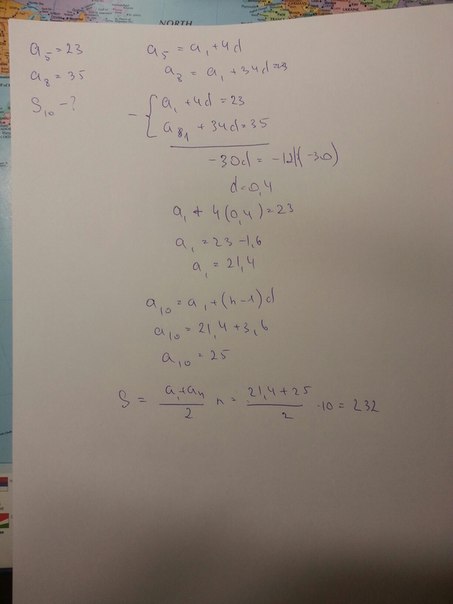 NORTH
a₅ = 23
a₈ = 35
S₁₀ - ?
a₅ = a₁ + 4d
a₈ = a₁ + 34d
- { a₁ + 4d = 23
+ 34d = 35
-30d = -12 |(-30)
d = 0,4
a₁ + 4(0,4) = 23
a₁ = 23 - 1,6
a₁ = 21,4
a₁₀ = a₁ + (n - 1)d
a₁₀ = 21,4 + 3,6
a₁₀ = 25
S = (a₁ + aₙ)/2 n = (21,4 + 25)/2 · 10 = 232